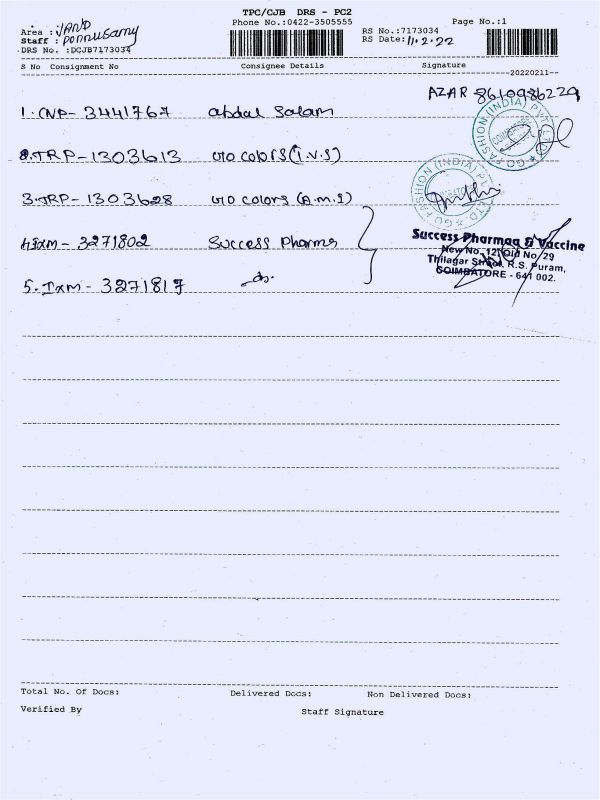 TPC/CJB DRS - PC2
Phone No.:0422-3505555 Page No.:1
Area : VAND
Staff : Ponnusamy
DRS No. :DCJB7173034
RS No.:7173034
RS Date: 11.2.22
S No Consignment No Consignee Details Signature
20220211
AZAR 8610986229
1. CNP- 3441767 abdul Salam
2. TRP-1303613 GO COLORS (I.V.S)
3. TRP- 1303628 GO COLORS (A.M.S)
4. IXM- 3271802 Success Pharma
5. IXM- 3271817 do.
GO FASHION (INDIA) PVT LTD
COIMBATORE
GO FASHION (INDIA) PVT LTD
Success Pharmaa & Vaccine
New No. 12, Old No. 29
Thilagar Street, R.S. Puram,
COIMBATORE - 641 002.
Total No. Of Docs: Delivered Docs: Non Delivered Docs:
Verified By Staff Signature